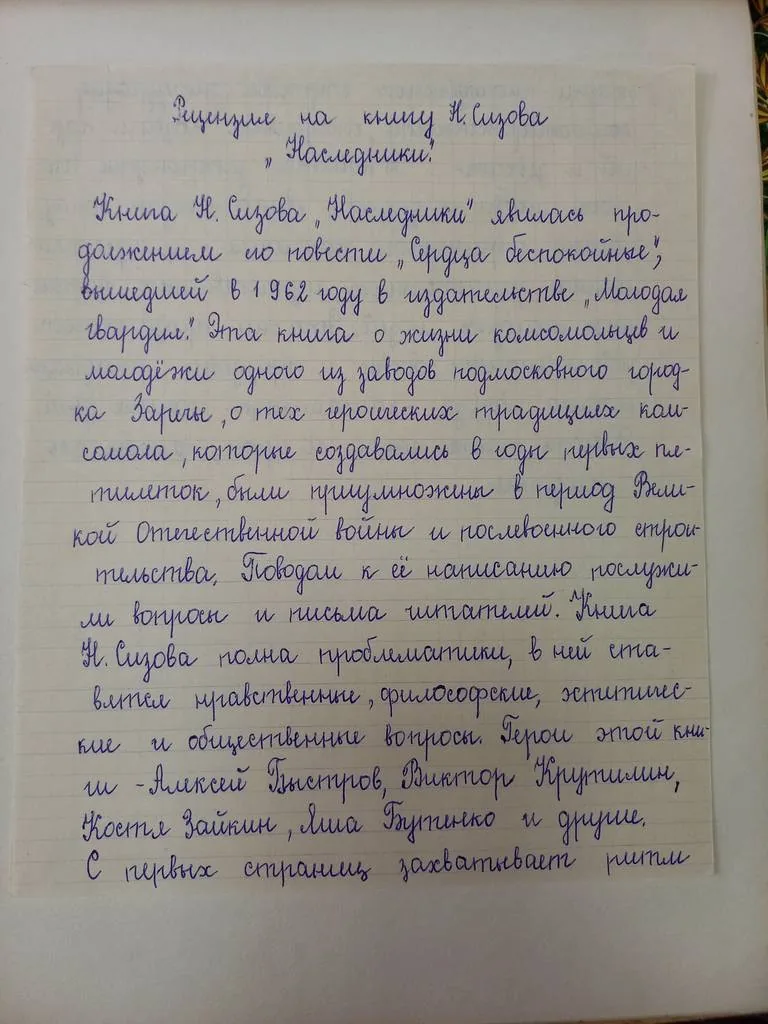 Рецензия на книгу Н. Сизова
„Наследники".
Книга Н. Сизова „Наследники" явилась про-
должением его повести „Сердца беспокойные",
вышедшей в 1962 году в издательстве „Молодая
гвардия". Эта книга о жизни комсомольцев и
молодёжи одного из заводов подмосковного город-
ка Заречье, о тех героических традициях ком-
сомола, которые создавались в годы первых пя-
тилеток, были приумножены в период Вели-
кой Отечественной войны и послевоенного строи-
тельства. Поводом к её написанию послужи-
ли вопросы и письма читателей. Книга
Н. Сизова полна проблематики, в ней ста-
вятся нравственные, философские, эстетичес-
кие и общественные вопросы. Герои этой кни-
ги - Алексей Быстров, Виктор Крутилин,
Костя Зайкин, Яша Бутенко и другие.
С первых страниц захватывает ритм